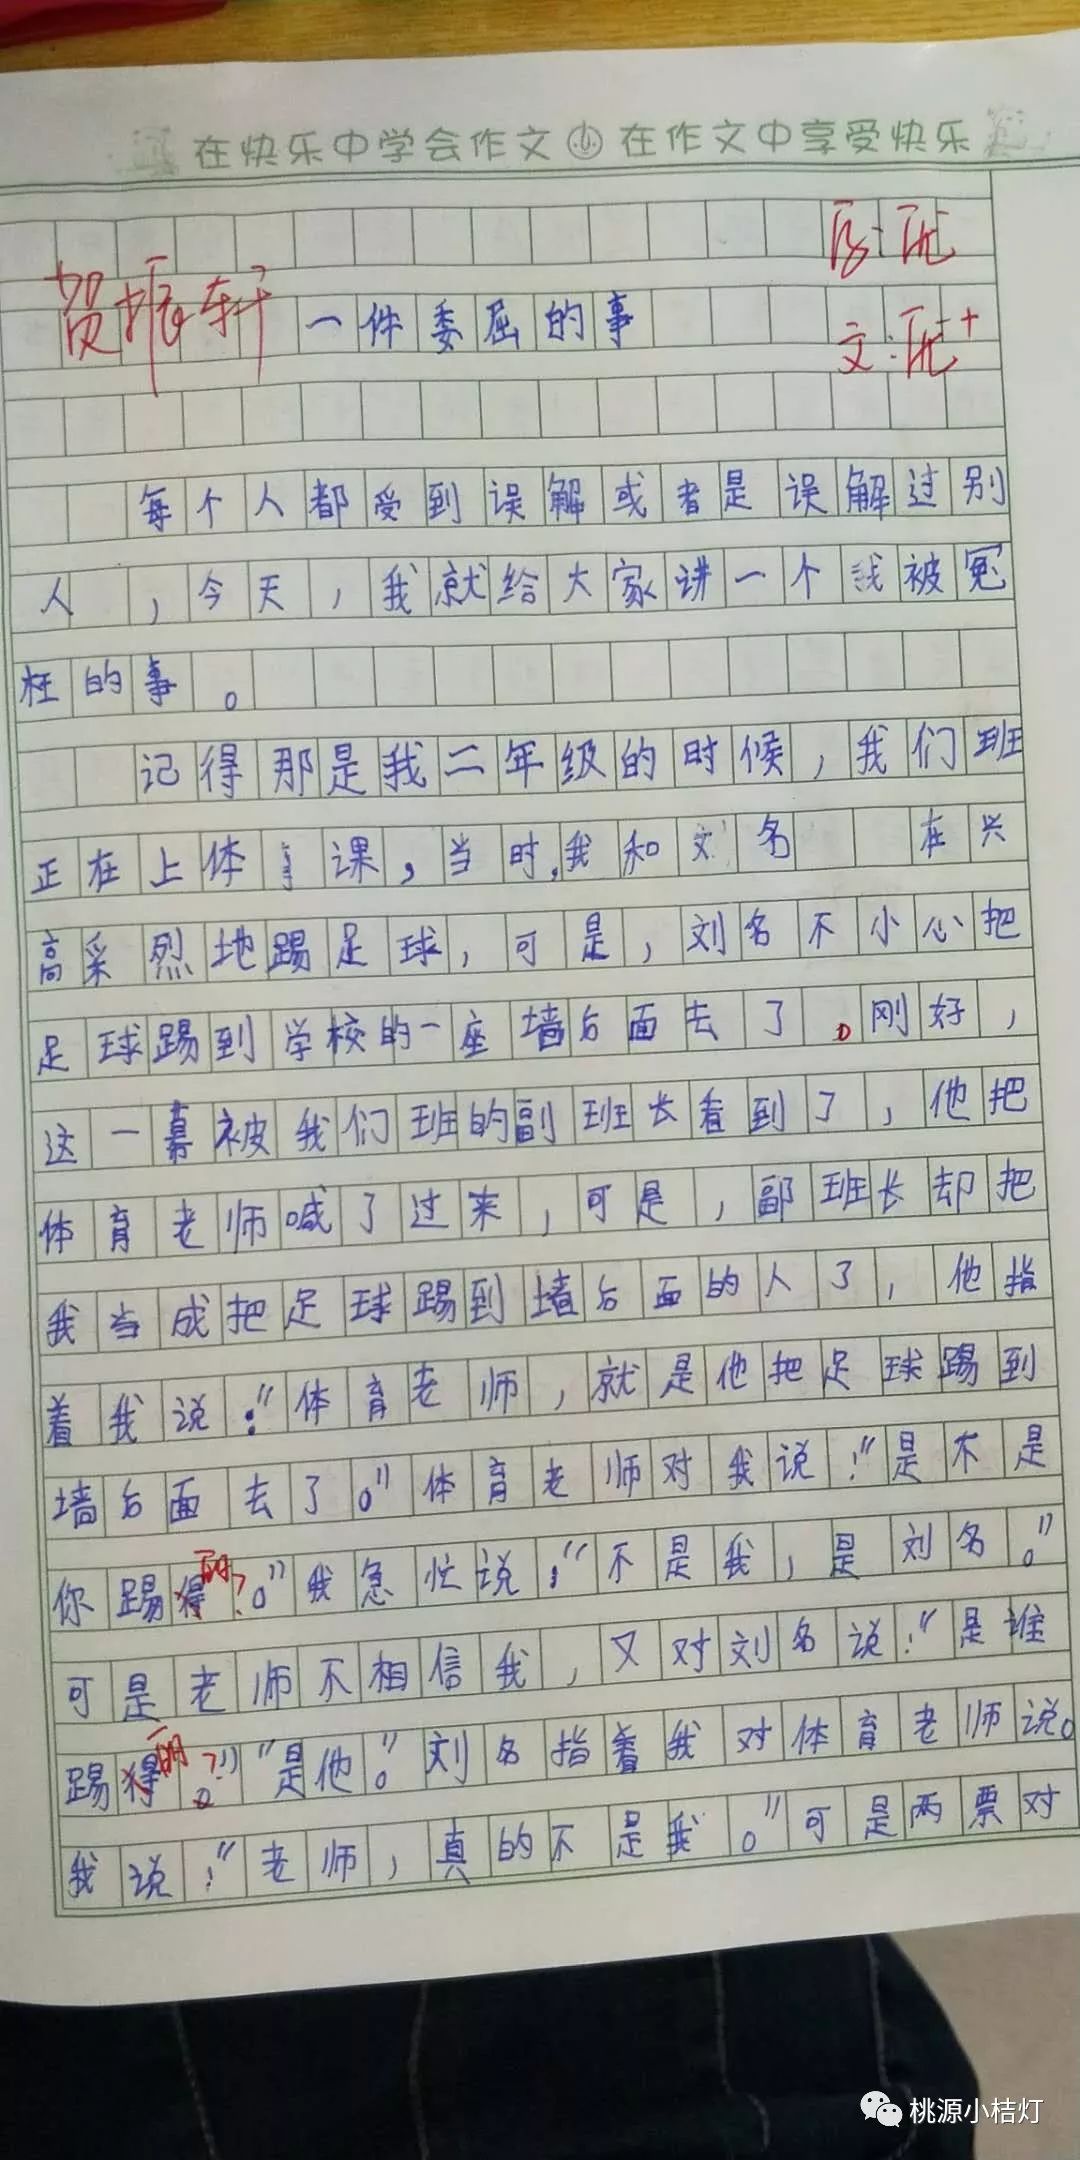 在快乐中学会作文 在作文中享受快乐
优
贺振轩 一件委屈的事 文:优+
每个人都受到误解或者是误解过别
人，今天，我就给大家讲一个我被冤
枉的事。
记得那是我二年级的时候，我们班
正在上体课，当时,我和名在兴
高采烈地踢足球，可是，刘名不小心把
足球踢到学校的一座墙后面去了。刚好，
这一幕被我们班的副班长看到了，他把
体育老师喊了过来，可是，副班长却把
我当成把足球踢到墙后面的人了，他指
着我说:"体育老师，就是他把足球踢到
墙后面去了。"体育老师对我说:"是不是
你踢得的?。"我急忙说:"不是我，是刘名。"
可是老师不相信我，又对刘名说:"是谁
踢得的?。""是他。"刘名指着我对体育老师说。
我说:"老师，真的不是我。"可是两票对
桃源小桔灯